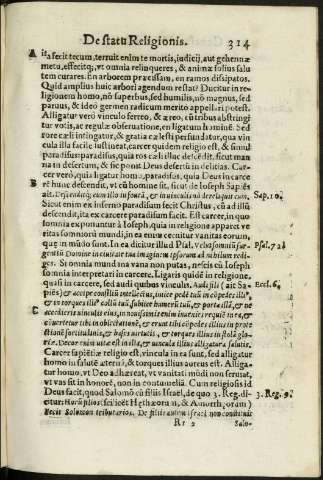 De statu Religionis. 314
A ita fecit tecum, terruit enim te mortis, iudicij, aut gehennæ
metu, effecitq;, vt omnia relinqueres, & animæ solius salu
tem curares. En arborem præcessam, en ramos dissipatos.
Quid amplius huic arbori agendum restat? Ducitur in re-
ligionem homo, nō superbus, sed humilis, nō magnus, sed
paruus, & ideò germen radicum meritò appellari potest.
Alligatur verò vinculo ferreo, & æreo, cū tribus abstringi
tur votis, ac regulæ obseruatione, en ligatum hominē. Sed
rore cæli intingitur, & gratia cælesti perfunditur, qua vin-
cula illa facile sustineat, carcer quidem religio est, & simul
paradisus paradisus, quia ros cæli illuc descēdit, sicut man
na in desertum, & sic ponit Deus desertū in delitias. Car-
cer verò, quia ligatur homo, paradisus, quia Deus in carce
B rē hunc descendit, vt cū homine sit, sicut de Ioseph Sapiēs
ait. Descenditq; cum illo in foueā, & in vinculis nō dereliquit eum. Sap. 10.
Sicut enim ex inferno paradisum fecit Christus, cū ad illū
descendit, ita ex carcere paradisum facit. Est carcer, in quo
somnia exponuntur à Ioseph, quia in religione apparet ve
ritas somnorū mundi, in ea enim cernitur vanitas eorum,
quæ in mūdo sunt. In ea dicitur illud Psal. Velut somniū sur- Psal. 72.
gentiū Domine in ciuitate tua imaginem ipsorum ad nihilum rediges.
Si omnia mundana vana non putas, nescis cū Ioseph
somnia interpretari in carcere. Ligaris quidē in religione,
quasi in carcere, sed audi quibus vinculis. Audi fili (ait Sa- Eccl. 6.
piēs) & accipe consiliū intellectus, inijce pedē tuū in cōpedes illiꝰ,
& in torques illiꝰ collū tuū, subijce humerū tuū, & porta illā, & ne
C acedieris vinculis eius, in nouissimis enim inuenies requiē in ea, &
cōuertetur tibi in oblectationē, & erunt tibi cōpedes illius in prote
ctionē fortitudinis, & bases virtutis, & torques illius in stolā glo-
riæ. Decor enim vitæ est in illa, & vincula illius alligatura salutis.
Carcer sapiētiæ religio est, vincula in ea sunt, sed alligatur
homo in salutē æternā, & torques illius aureus est. Alliga-
tur homo, vt Deo adhæreat, vt vanitati mūdi non seruiat,
vt vas sit in honorē, non in contumeliā. Cum religiosis id
Deus facit, quod Salomō cū filijs Israel, de quo 3. Reg. di- 3. Reg. 9.
citur: Horū filios (scilicèt Hethæorū, & Amorrhæorum)
fecit Salomon tributarios. De filijs autem Israel non constituit
Rr 2 Salo-